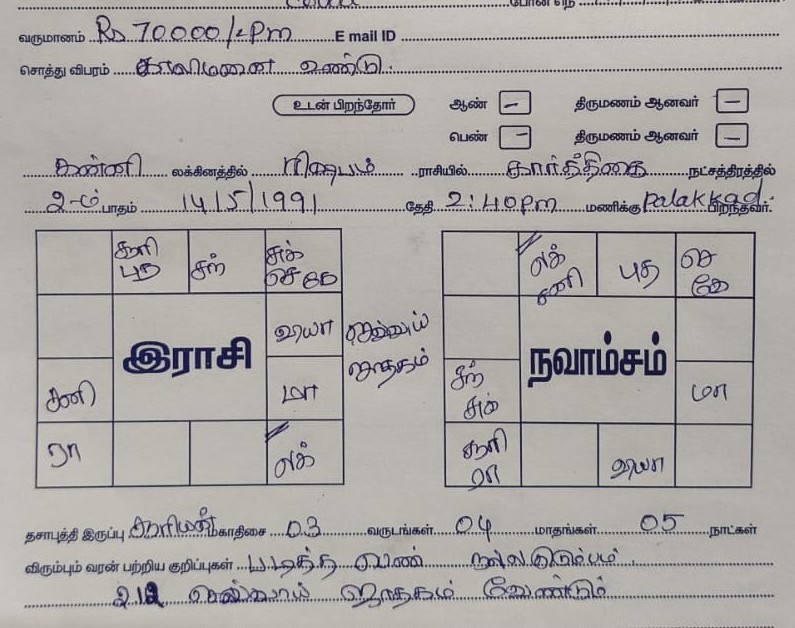 வருமானம் Rs 70000/- Pm E mail ID
சொத்து விபரம் காலிமனை உண்டு.
உடன் பிறந்தோர் ஆண் – திருமணம் ஆனவர் –
பெண் – திருமணம் ஆனவர் –
கன்னி லக்கினத்தில் ரிஷபம் ராசியில் கார்த்திகை நட்சத்திரத்தில்
2-ம் பாதம் 14/5/1991 தேதி 2:40pm மணிக்கு Palakkad பிறந்தவர்.
சூரி புத சந் சுக் செ கே
வியா
சனி இராசி மா
ரா லக்
செவ்வாய் ஜாதகம்
லக் சனி புத செ கே
சந் சுக் நவாம்சம் மா
சூரி ரா வியா
தசாபுத்தி இருப்பு சூரியன் மகாதிசை 03 வருடங்கள் 04 மாதங்கள் 05 நாட்கள்
விரும்பும் வரன் பற்றிய குறிப்புகள் படித்த நல்லகுடும்பம்
செவ்வாய் ஜாதகம் வேண்டும்